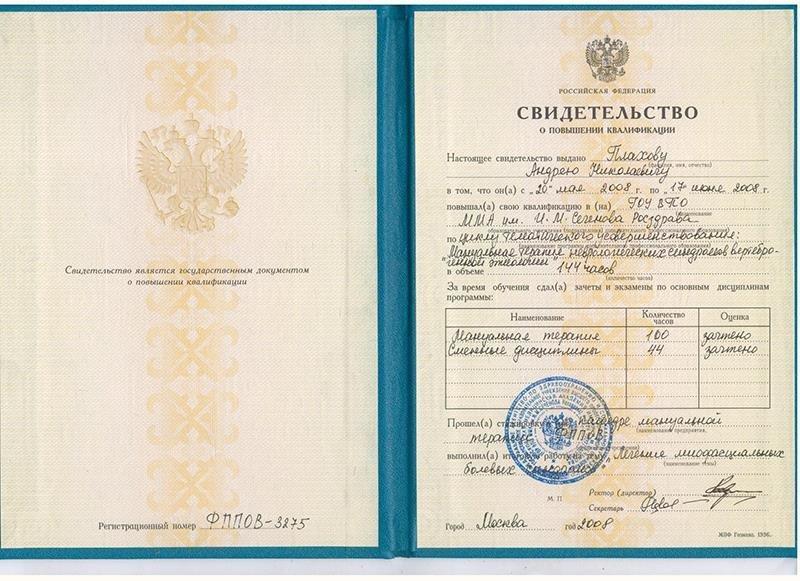 Свидетельство является государственным документом
о повышении квалификации
Регистрационный номер ФППОВ-3275
РОССИЙСКАЯ ФЕДЕРАЦИЯ
СВИДЕТЕЛЬСТВО
О ПОВЫШЕНИИ КВАЛИФИКАЦИИ
Настоящее свидетельство выдано Плахову
(фамилия, имя, отчество)
Андрею Николаевичу
в том, что он(а) с „20" мая 2008 г. по „17 июня 2008 г.
повышал(а) свою квалификацию в (на) ГОУ ВПО
ММА им. И. М. Сеченова Росздрава
по циклу тематического усовершенствования:
"Мануальная терапия неврологических синдромов вертебро-
генной этиологии"
в объеме 144 часов
(количество часов)
За время обучения сдал(а) зачеты и экзамены по основным дисциплинам
программы:
Наименование Количество часов Оценка
Мануальная терапия 100 зачтено
Смежные дисциплины 44 зачтено
Прошел(а) стажировку в (на) кафедре мануальной
(наименование предприятия,
терапии ФППОВ
выполнил(а) итоговую работу на тему Лечение миофасциальных
(наименование темы)
болевых
М. П.
Ректор (директор)
Секретарь
Город Москва год 2008
МПФ Гознака. 1996.